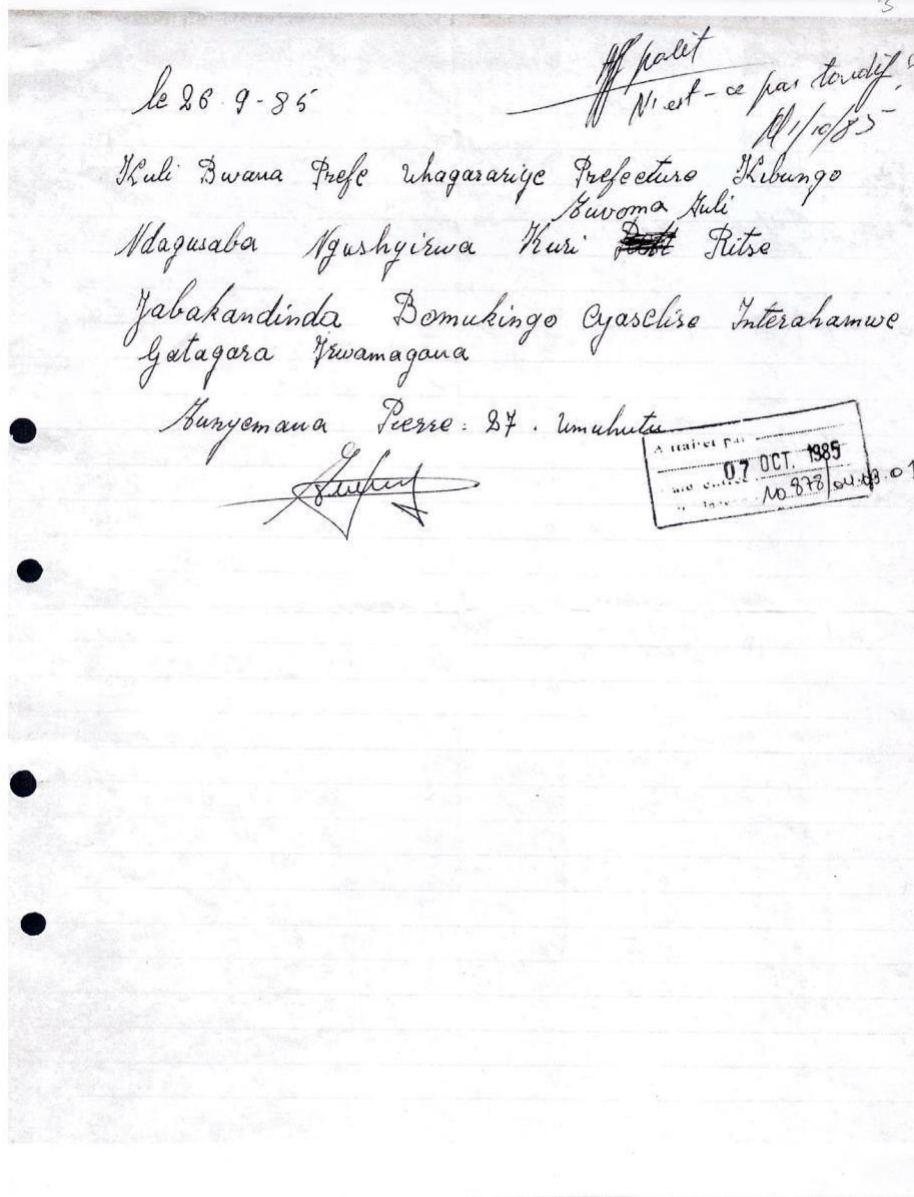 3
Aff polit
N'est-ce pas tardif!
1/10/85
le 26.9-85
Kuli Bwana Prefe Uhagarariye Prefecture Kibungo
Kuvoma Kuli
Ndagusaba Ngushyirwa Kuri Ritse
Jabakandinda Bomukingo Cyaselire Interahamwe
Gatagara Rwamagana
Kunyemana Pierre: 27. Umuhutu
A traiter par
07 OCT. 1985
No 878/04.03.01